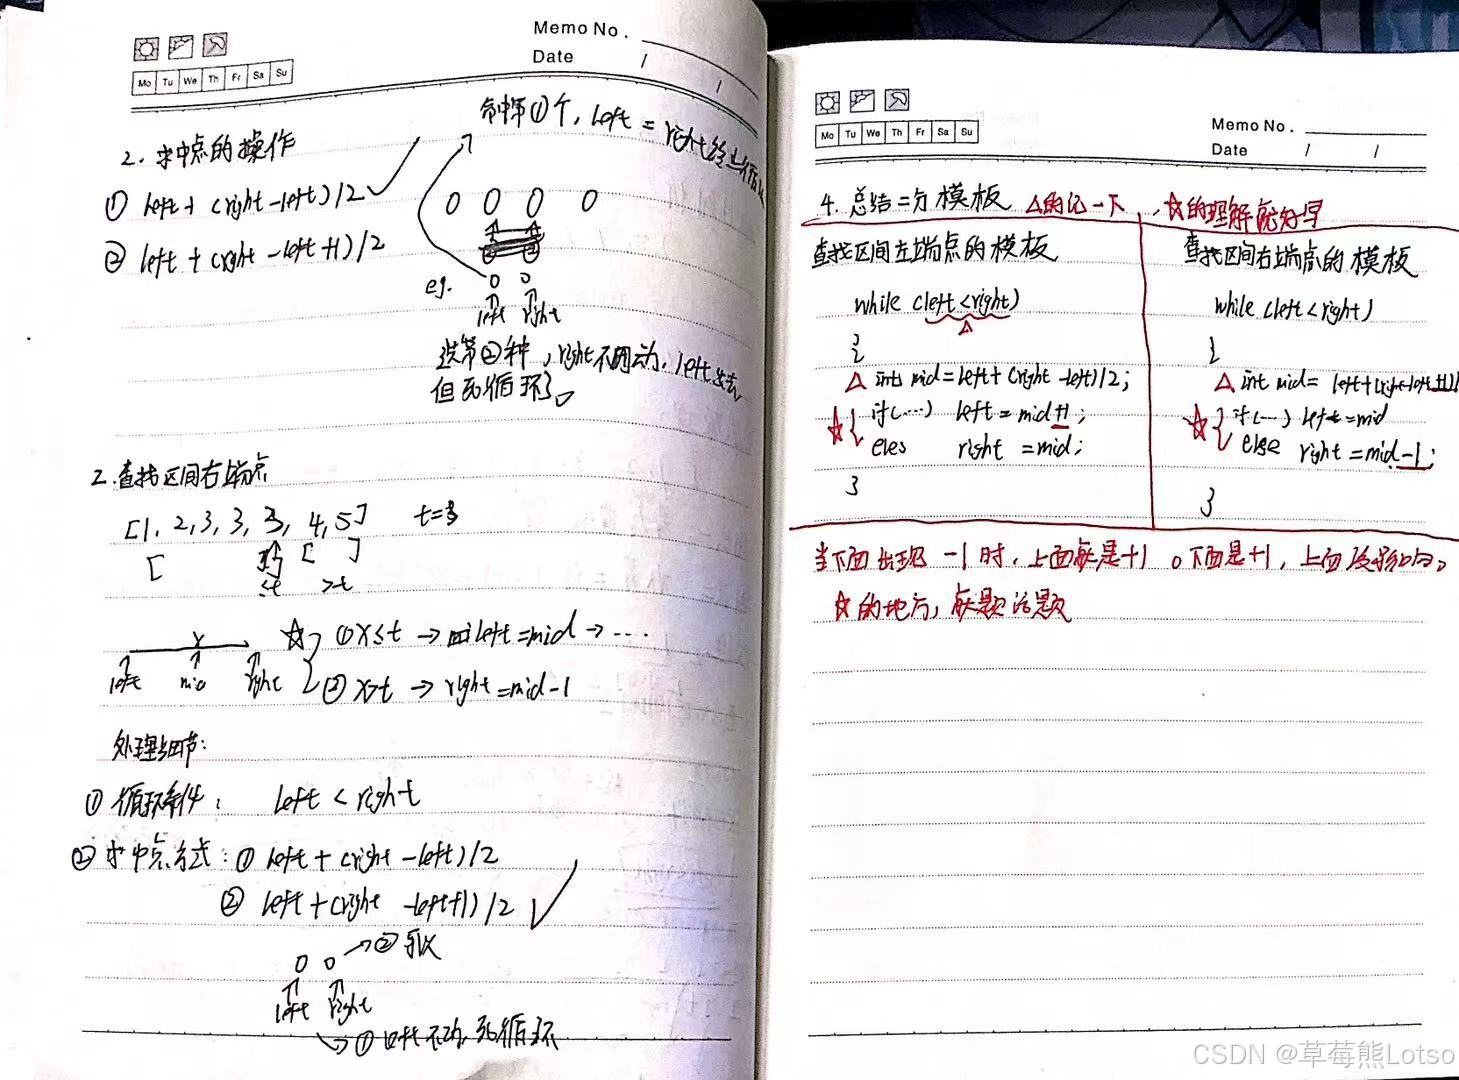 Memo No.
Date / /
Mo Tu We Th Fr Sa Su
2. 求中点的操作
① left + (right-left)/2 ✓
② left + (right-left+1)/2
第①个, left = right
0 0 0 0
eg. 0 0
left right
选第②种, right不动, left
但死循环了。
2.查找区间右端点
[1, 2, 3, 3, 3, 4, 5] t=3
[ ] [ ]
≤t >t
x
left mid right
☆ ① x≤t → left=mid → ...
② x>t → right=mid-1
处理细节:
① 循环条件: left < right
② 求中点方式: ① left + (right-left)/2
② left + (right -left+1)/2 ✓
0 0 → ②
left right
→ ① left不动 死循环
Memo No.
Date / /
Mo Tu We Th Fr Sa Su
4. 总结二分模板 △的记一下, ☆的理解就好
查找区间左端点的模板
while (left<right)
△
{
△ int mid=left+(right-left)/2;
☆ { if(...) left = mid+1;
eles right = mid;
}
查找区间右端点的模板
while (left<right)
{
△ int mid= left+(right-left+1)/
☆ { if(...) left=mid
else right =mid-1;
}
当下面出现 -1 时, 上面就是+1 。下面是+1, 上面没影响。
☆的地方, 就题论题
CSDN @草莓熊Lotso